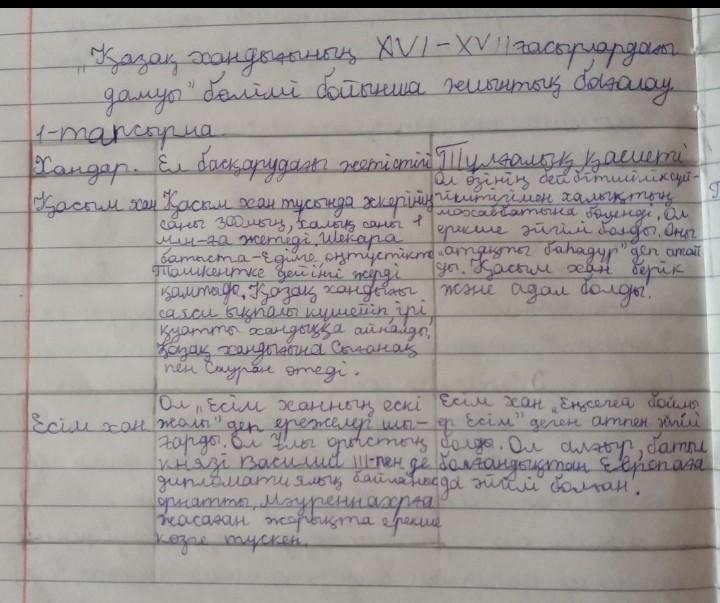 „Қазақ хандығының XVI-XVII ғасырлардағы
дамуы" бөлімі бойынша жиынтық бағалау
1-тапсырма.
Хандар.
Ел басқарудағы жетістігі
Тұлғалық қасиеті
Қасым хан
Қасым хан тұсында әскерінің
саны 300мың, халық саны 1
млн-ға жетеді. Шекара
батыста-Еділге, оңтүстікте
Ташкентке дейінгі жерді
қамтыды. Қазақ хандығы
саяси ықпалы күшейіп, ірі,
қуатты хандыққа айналды,
Қазақ хандығына Сығанақ
пен Сауран өтеді.
Ол өзінің бейбітшіліксүй-
гіштігімен халықтың
махаббатына бөленді. Ол
ерекше әйгілі болды. Оны
„атақты баһадүр" деп атай
ды. Қасым хан берік
және адал болды.
Есім хан
Ол „Есім ханның ескі
жолы" деп ережелер шы-
ғарды. Ол Ұлы орыстың
князі Василий III-пен де
дипломатиялық байланыс
орнатты. Мәуреннахрға
жасаған жорықта ерекше
көзге түскен.
Есім хан „Еңсегей бойлы
ер Есім" деген атпен әйгілі
болды. Ол алғыр, батыл
болғандықтан Европаға
да әйгілі болған.